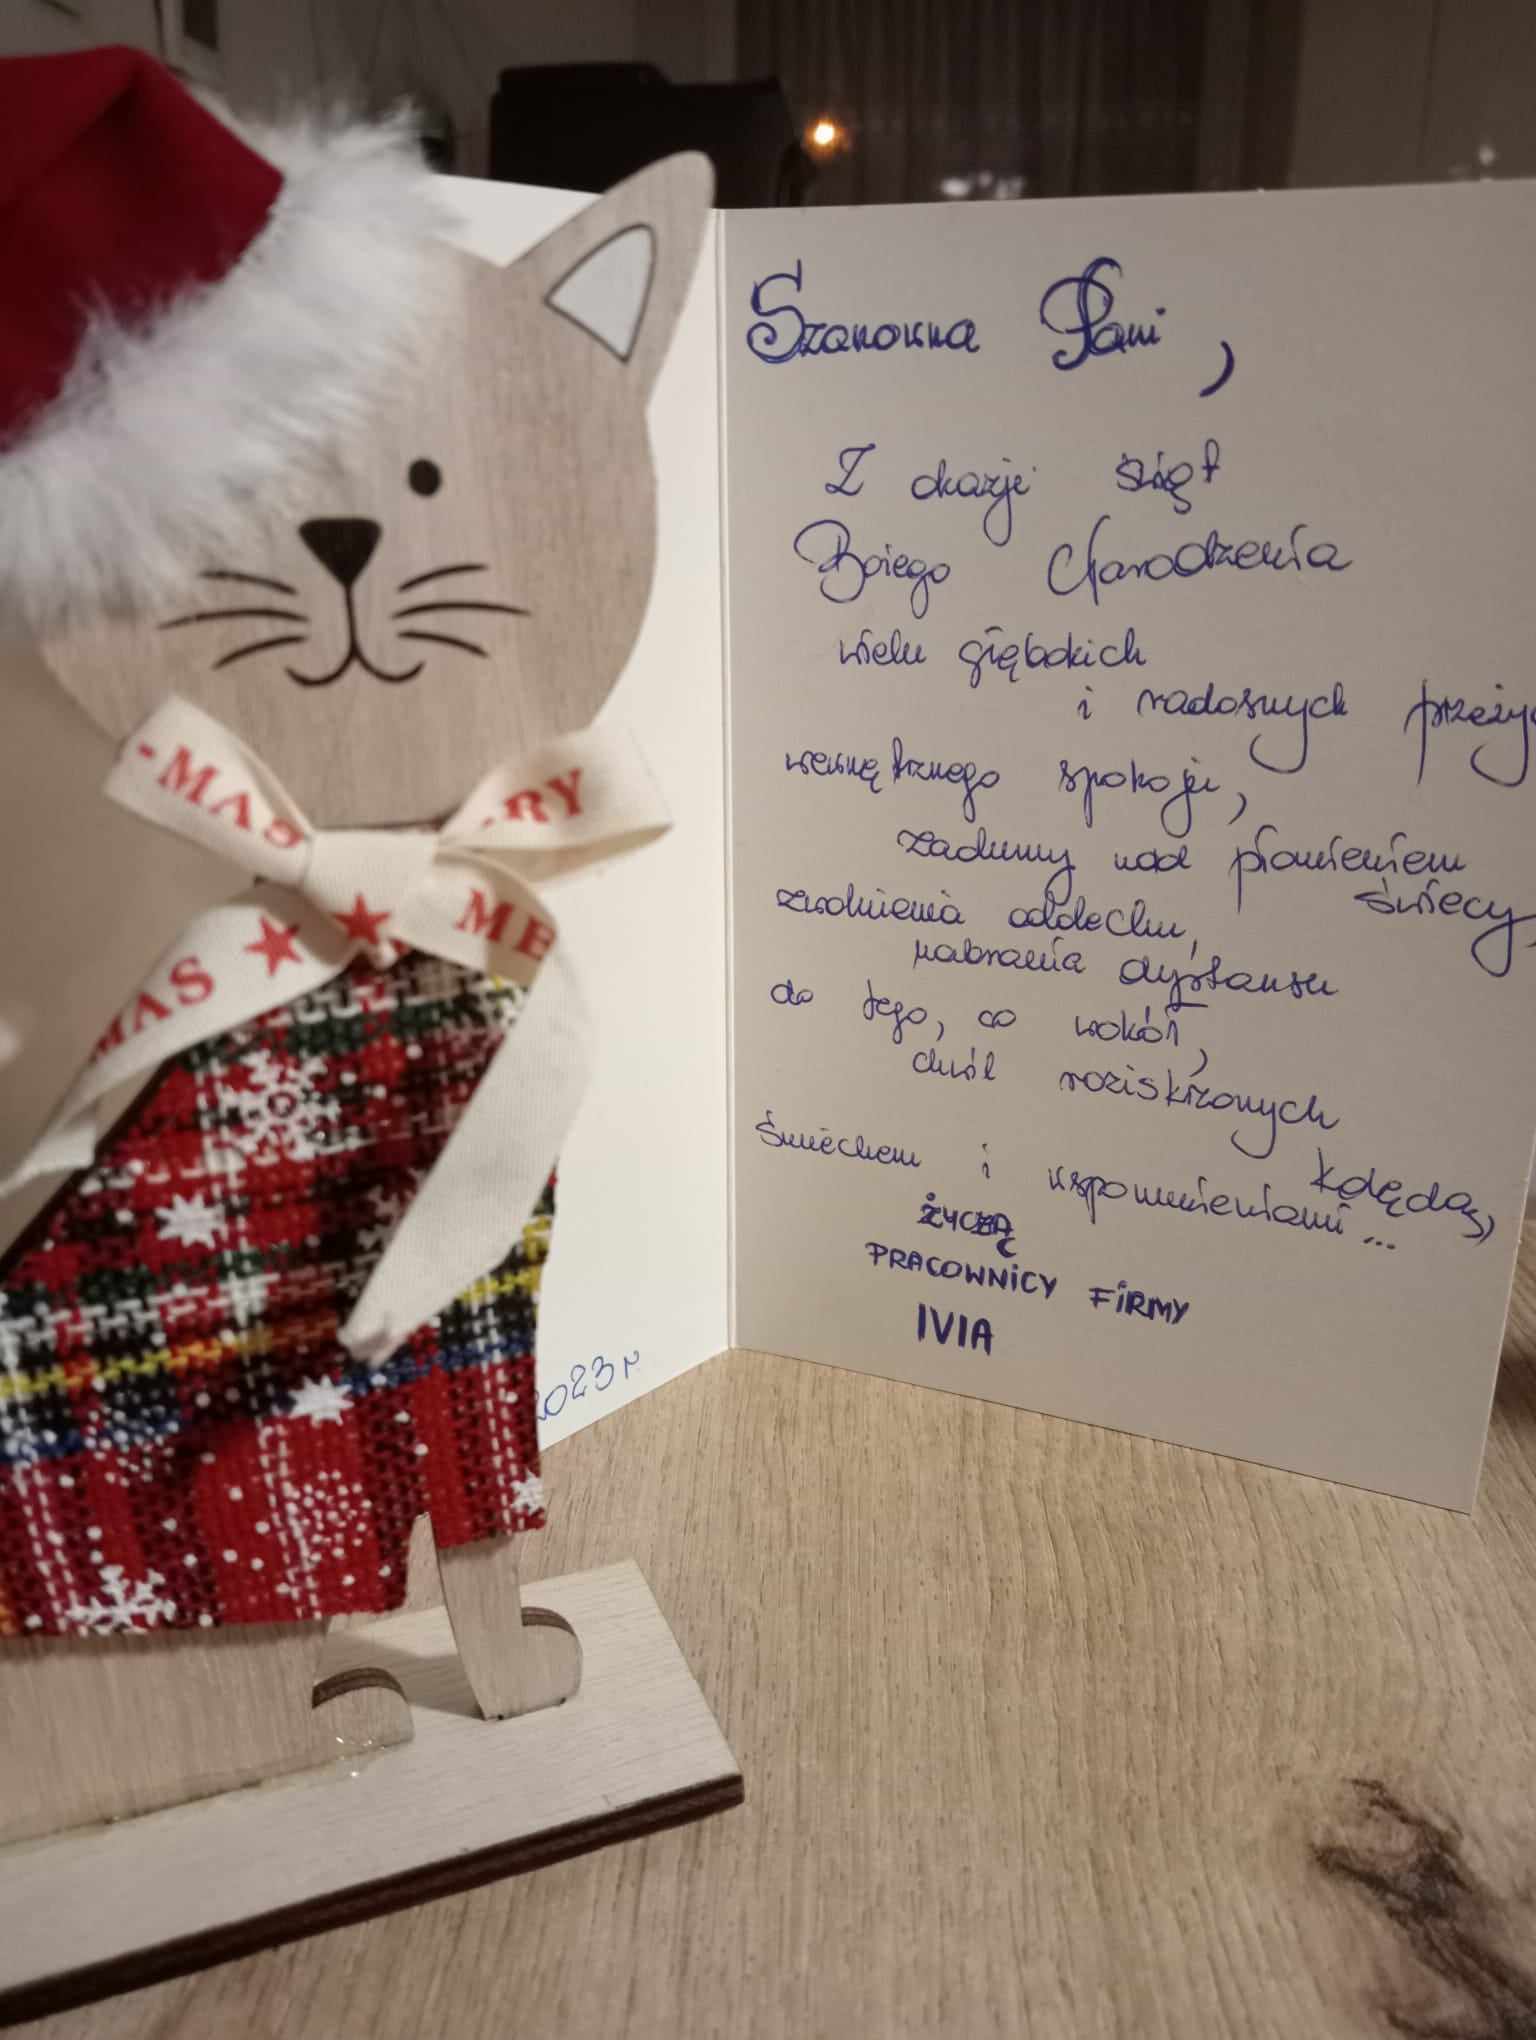 Szanowna Pani,
Z okazji Świąt
Bożego Narodzenia
wielu głębokich
i radosnych przeży
wewnętrznego spokoju,
zadumy nad płomieniem
świecy,
zwolnienia oddechu,
nabrania dystansu
do tego, co wokół,
chwil roziskrzonych
kolędą,
śmiechem i wspomnieniami...
ŻYCZĄ
PRACOWNICY FIRMY
IVIA
2023 r
-MAS
RY
MAS ★ ★ ME